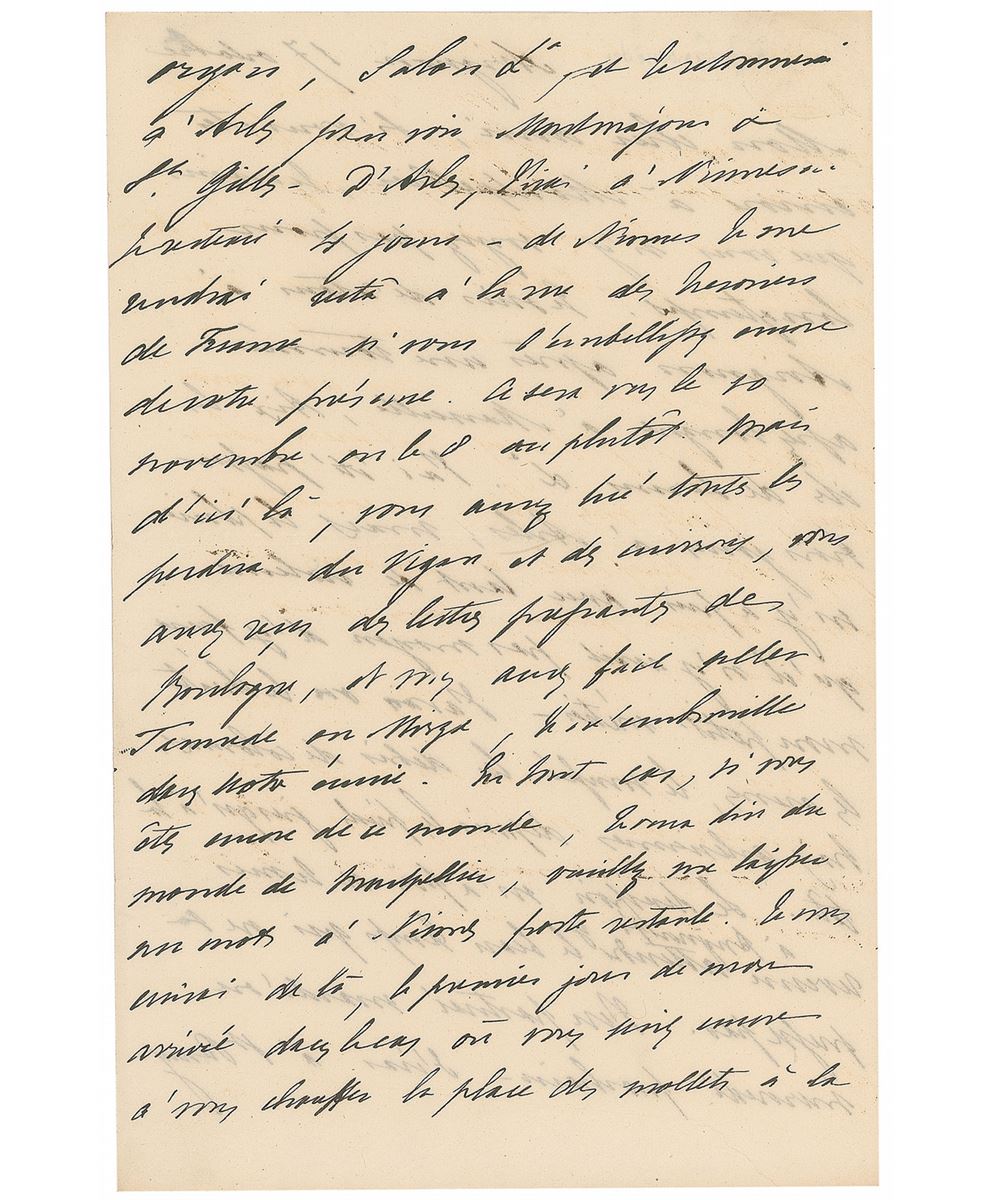 Orgon, Salon &a et je retournerai
à Arles pour voir Montmajour &
St. Gilles - D'Arles, j'irai à Nimes où
je resterai 4 jours - de Nimes je me
rendrai à la rue des Tresoriers
de France si vous l'embellissez encore
de votre présence. Ce sera vers le 10
novembre ou le 8 au plutôt. Mais
d'ici là, vous aurez tué toutes les
perdrix du Vigan et des environs, vous
aurez reçu des lettres pressantes de
Boulogne, et vous aurez fait seller
ou, je m'embrouille
dans votre écurie. En tout cas, si vous
êtes encore de ce monde, j'entends du
monde de Montpellier, veuillez me laisser
un mot à Nimes poste restante. Je vous
écrirai de là, le premier jour de mon
arrivée dans le cas où vous seriez encore
à vous chauffer la place des mollets à la